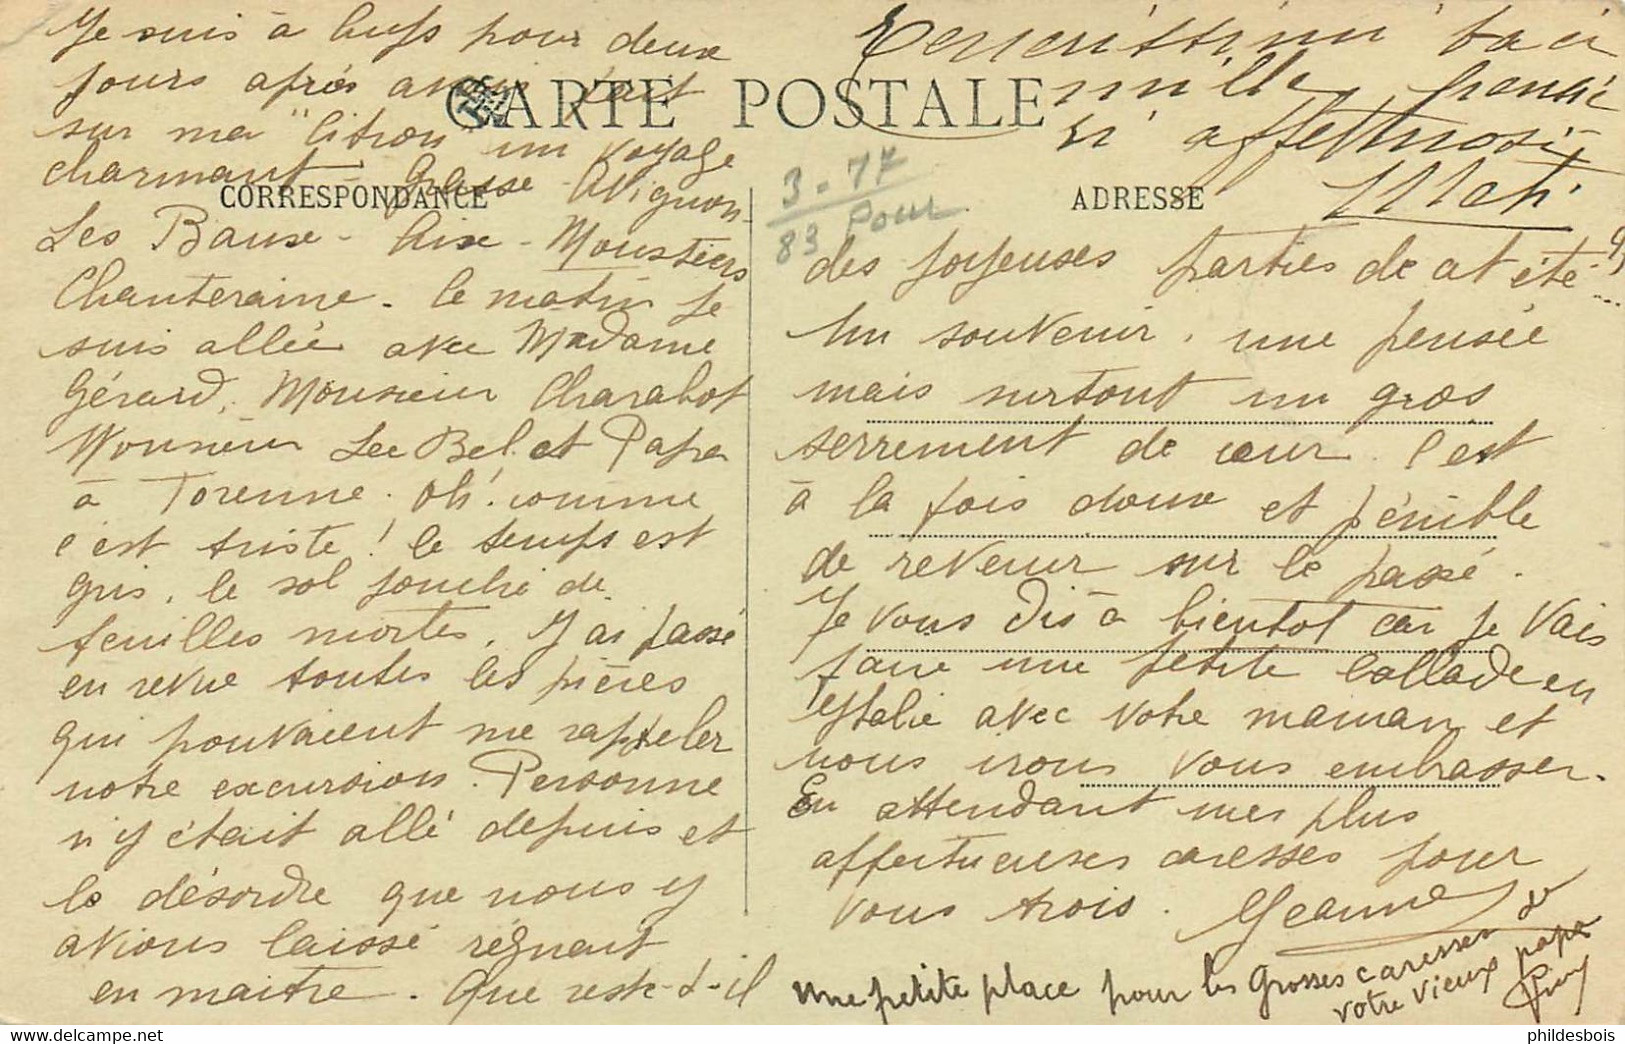 Je suis à Cups pour deux
jours après avoir fait
sur ma "Citron" un voyage
charmant - Grasse - Avignon -
Les Baux - Aix - Moustiers
Chanteraine - Ce matin je
suis allée avec Madame
Gérard, Monsieur Charabot
Monsieur Lee Bel et Papa
à Torenne. Oh! comme
c'est triste! Le temps est
gris, le sol jonché de
feuilles mortes. J'ai passé
en revue toutes les pièces
qui pouvaient me rappeler
notre excursion. Personne
n'y était allé depuis et
le désordre que nous y
avions laissé régnait
en maître. Que reste-t-il
CARTE POSTALE
CORRESPONDANCE
ADRESSE
Tenerissimi baci
mille grazie
affettuosi
3-77
83 Pour
des joyeuses parties de cet été?
Un souvenir, une pensée
mais surtout un gros
serrement de cœur. C'est
à la fois doux et pénible
de revenir sur le passé.
Je vous dis à bientôt car je vais
faire une petite ballade en
Italie avec votre maman et
nous irons vous embrasser.
En attendant mes plus
affectueuses caresses pour
vous trois. Jeanne
Une petite place pour les grosses caresses de
votre vieux papa
Guy
phildesbois